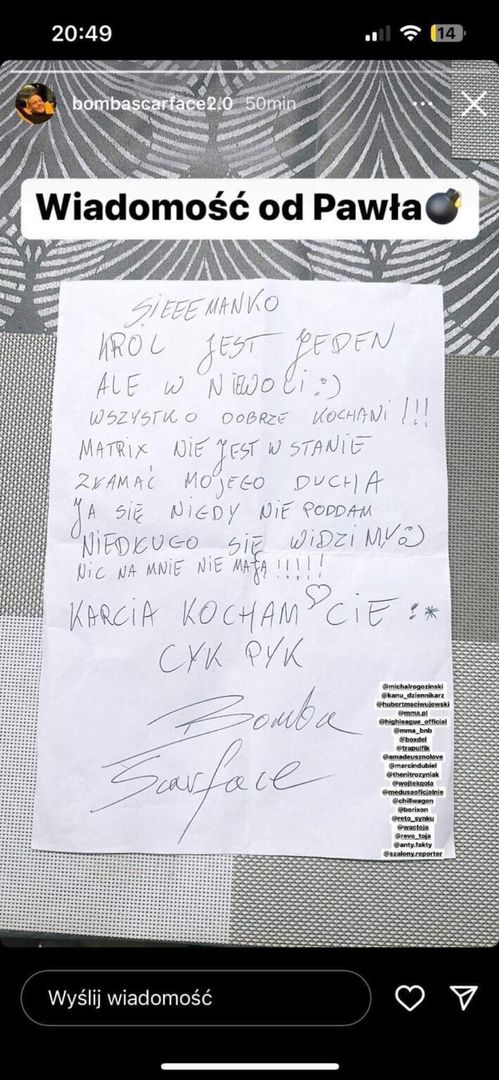 20:49
14
bombascarface2.0 50min
Wiadomość od Pawła💣
SIEEEMANKO
KRÓL JEST JEDEN
ALE W NIEWOLI :)
WSZYSTKO DOBRZE KOCHANI !!!
MATRIX NIE JEST W STANIE
ZŁAMAĆ MOJEGO DUCHA
JA SIĘ NIGDY NIE PODDAM
NIEDŁUGO SIĘ WIDZIMY :)
NIC NA MNIE NIE MAJĄ !!!!!
KARCIA KOCHAM ♡ CIE :*
CYK PYK
Bomba
Scarface
@michalrogozinski
@kanu_dziennikarz
@hubertmsciwujewski
@mma.pl
@highleague_official
@mma_bnb
@boxdel
@trapulfik
@amadeusznolove
@marcindubiel
@thenitrozyniak
@wojtekgola
@medusaoficjalnie
@chillwagon
@borixon
@reto_synku
@wactoja
@revo_toja
@anty.fakty
@szalony.reporter
Wyślij wiadomość